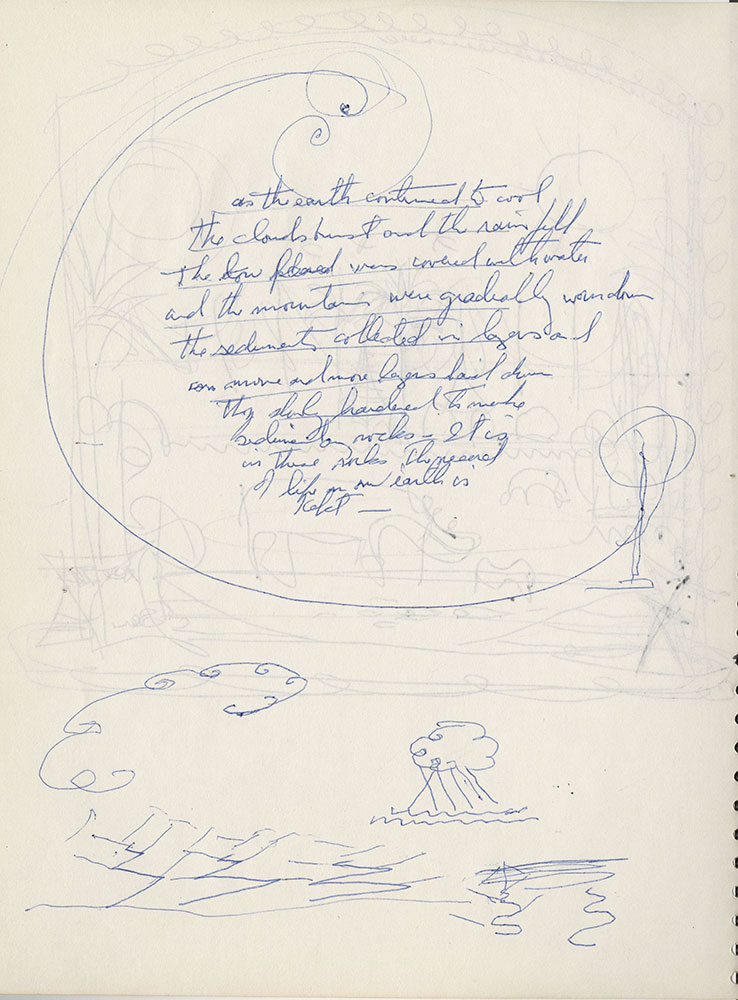 as the earth continued to cool
the clouds burst and the rain fell
the low was covered with water
and the mountains were gradually worn down
the sediments collected in layers and
as more and more layers laid down
They slowly hardened to make
sedimentary rocks - It is
in these rocks the record
of life on our earth is
Kept —